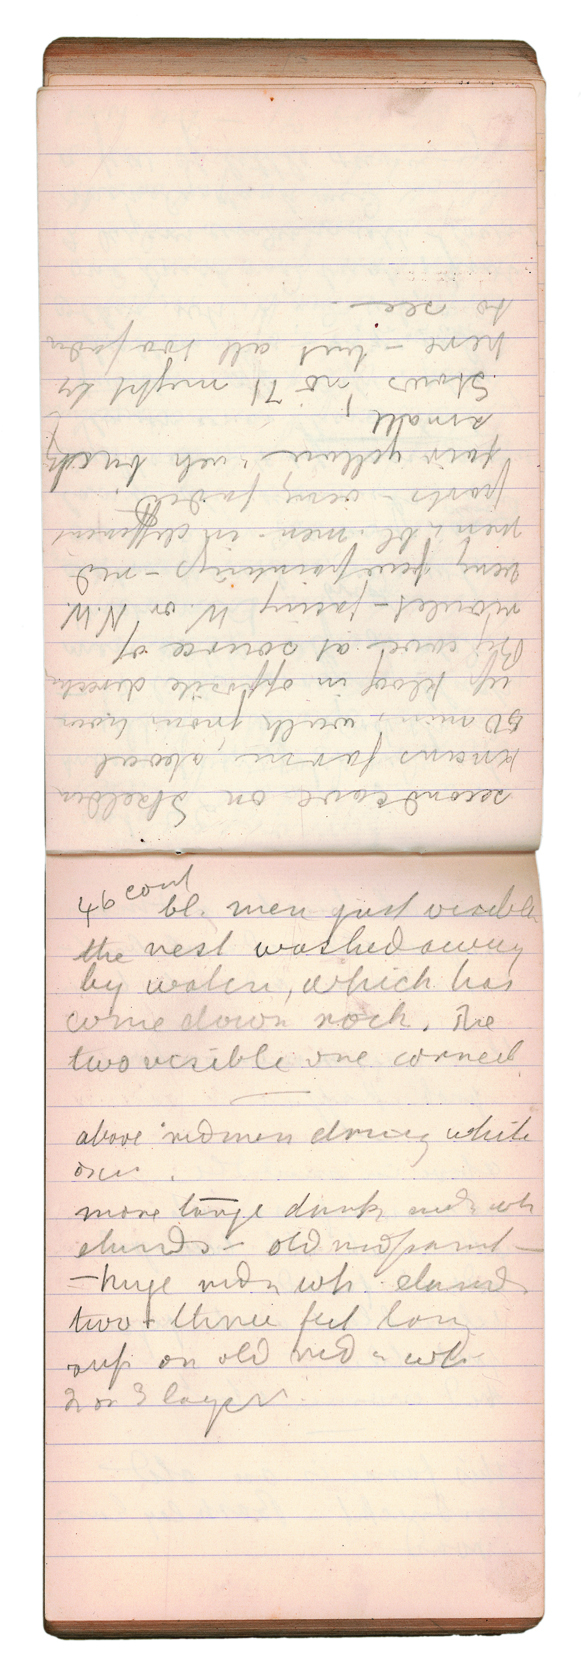 second cave on Skelder
knans farm, about
50 min, walk from hom
up kloof in opposite direct
Big cave at source of
rivulet - facing W. or N.W.
very few paintings - red
men & bl. men - in different
parts - very faded
fair yellow & wh buck
small,
Shows no 71 might by
here - but all too fadn
to see -
46 cont
bl. men just visible
the rest washed away
by water, which has
come down rock. The
two visible one corned
above red men driving white
oxen.
more large dark red & wh
elands - old red paint -
- huge red & wh. elands
two & three feet long
sup on old red & wh
2 or 3 layers.